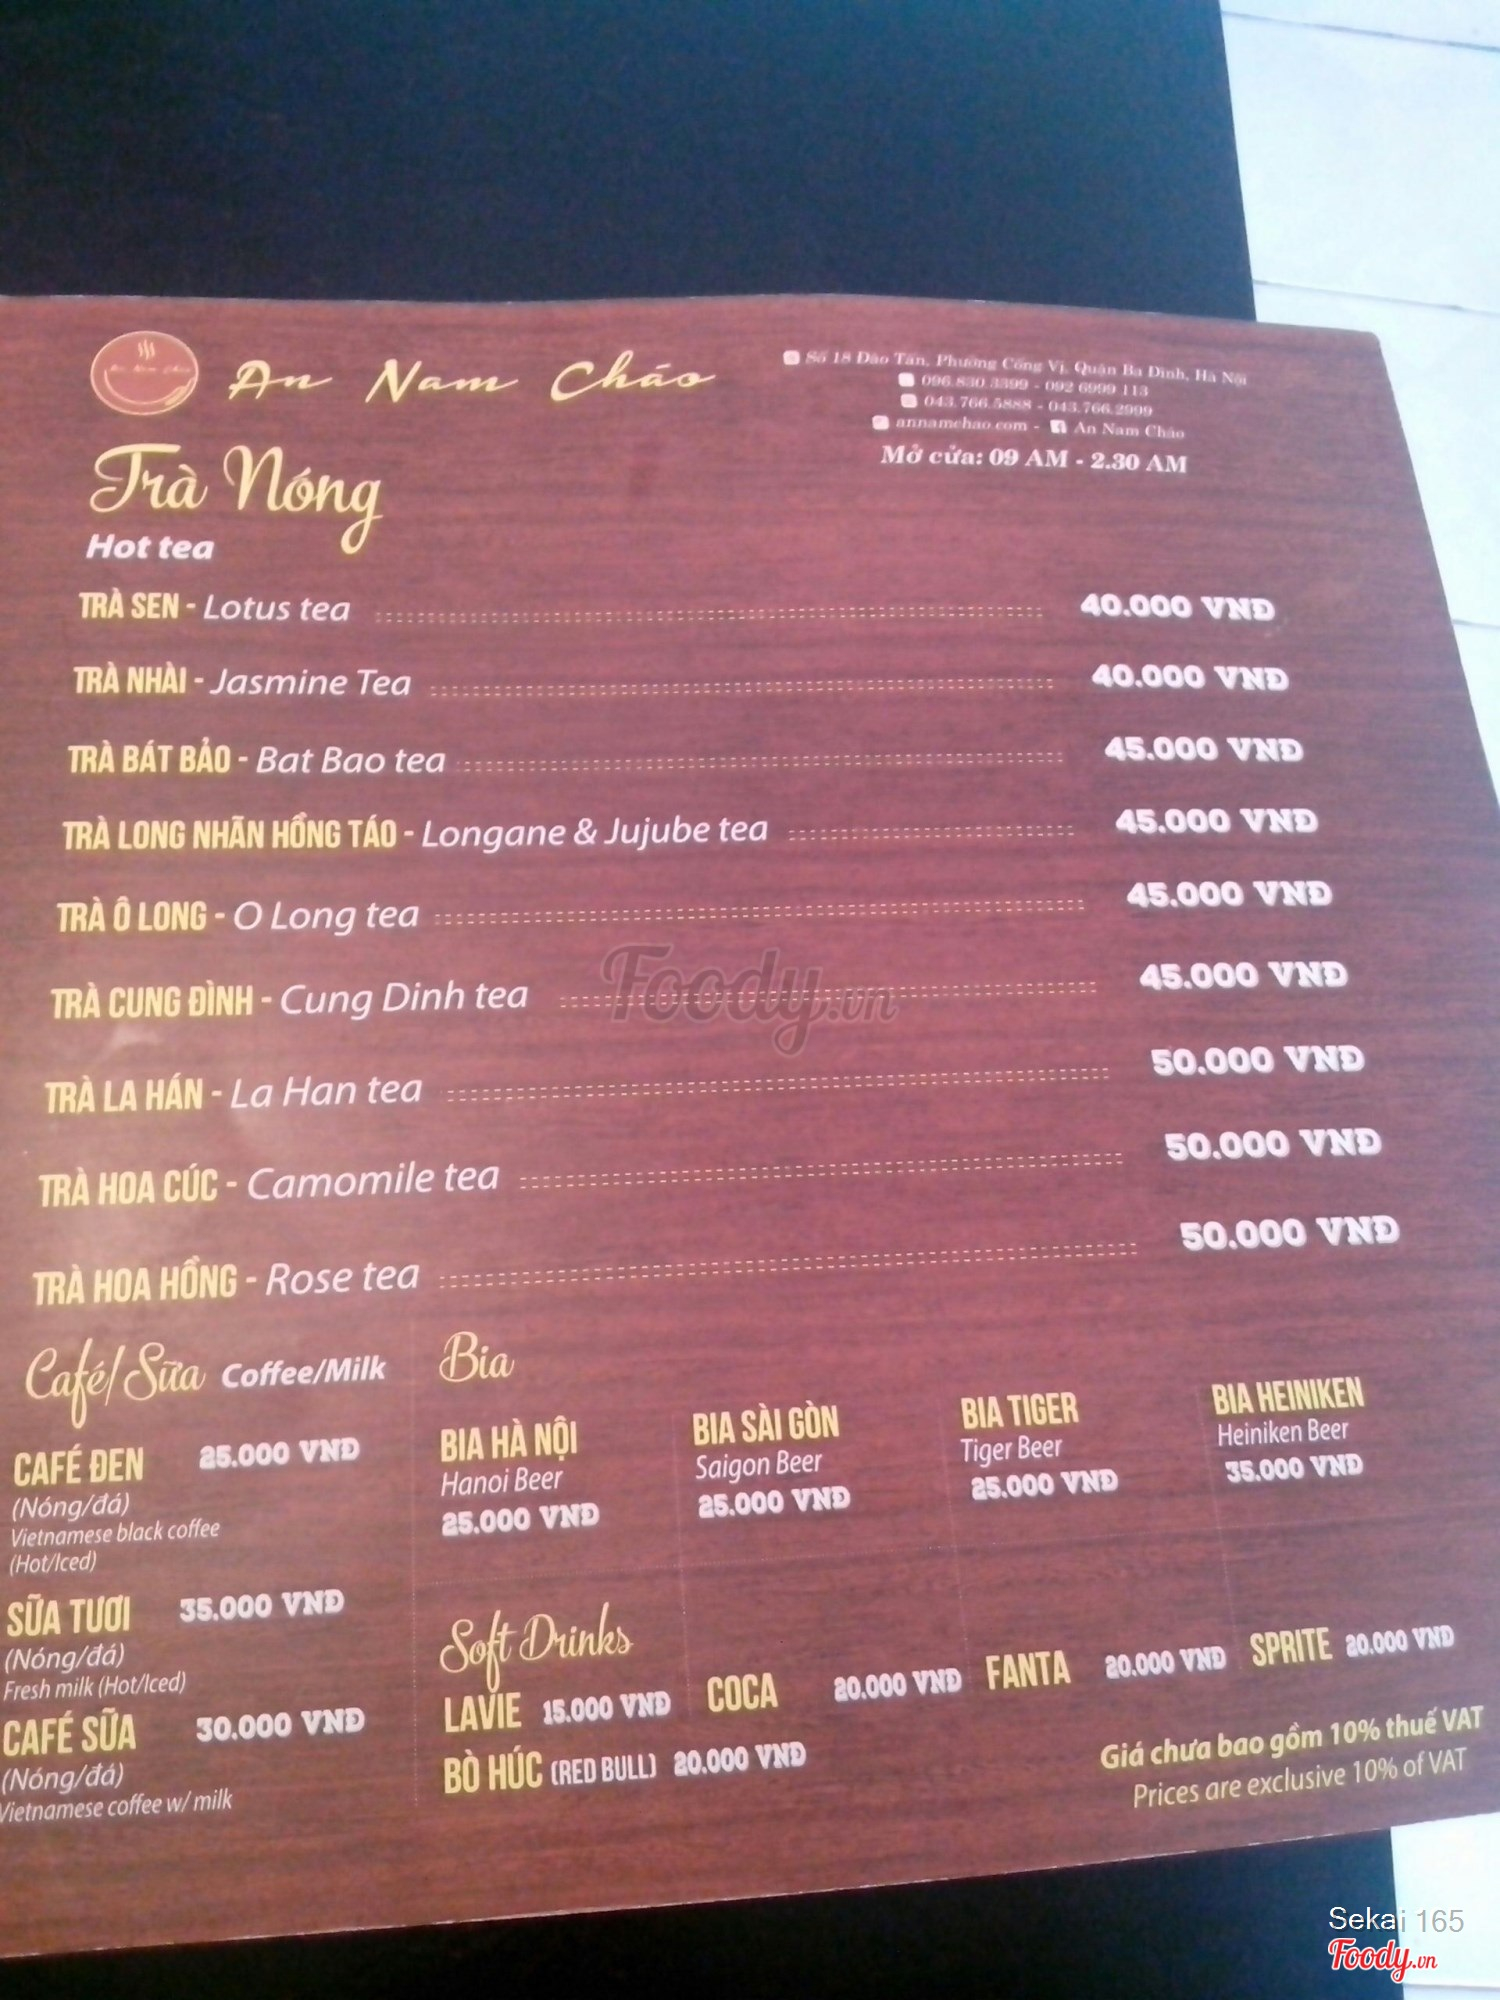 An Nam Cháo
An Nam Cháo
Số 18 Đào Tấn, Phường Cống Vị, Quận Ba Đình, Hà Nội
096.830.3399 - 092 6999 113
043.766.5888 - 043.766.2999
annamchao.com - An Nam Cháo
Mở cửa: 09 AM - 2.30 AM
Trà Nóng
Hot tea
TRÀ SEN - Lotus tea 40.000 VNĐ
TRÀ NHÀI - Jasmine Tea 40.000 VNĐ
TRÀ BÁT BẢO - Bat Bao tea 45.000 VNĐ
TRÀ LONG NHÃN HỒNG TÁO - Longane & Jujube tea 45.000 VNĐ
TRÀ Ô LONG - O Long tea 45.000 VNĐ
TRÀ CUNG ĐÌNH - Cung Dinh tea 45.000 VNĐ
Foody.vn
TRÀ LA HÁN - La Han tea 50.000 VNĐ
TRÀ HOA CÚC - Camomile tea 50.000 VNĐ
TRÀ HOA HỒNG - Rose tea 50.000 VNĐ
Café/Sữa Coffee/Milk
CAFÉ ĐEN 25.000 VNĐ
(Nóng/đá)
Vietnamese black coffee
(Hot/Iced)
SỮA TƯƠI 35.000 VNĐ
(Nóng/đá)
Fresh milk (Hot/Iced)
CAFÉ SỮA 30.000 VNĐ
(Nóng/đá)
Vietnamese coffee w/ milk
Bia
BIA HÀ NỘI
Hanoi Beer
25.000 VNĐ
BIA SÀI GÒN
Saigon Beer
25.000 VNĐ
BIA TIGER
Tiger Beer
25.000 VNĐ
BIA HEINIKEN
Heiniken Beer
35.000 VNĐ
Soft Drinks
LAVIE 15.000 VNĐ COCA 20.000 VNĐ FANTA 20.000 VNĐ SPRITE 20.000 VNĐ
BÒ HÚC (RED BULL) 20.000 VNĐ
Giá chưa bao gồm 10% thuế VAT
Prices are exclusive 10% of VAT
Sekai 165
Foody.vn